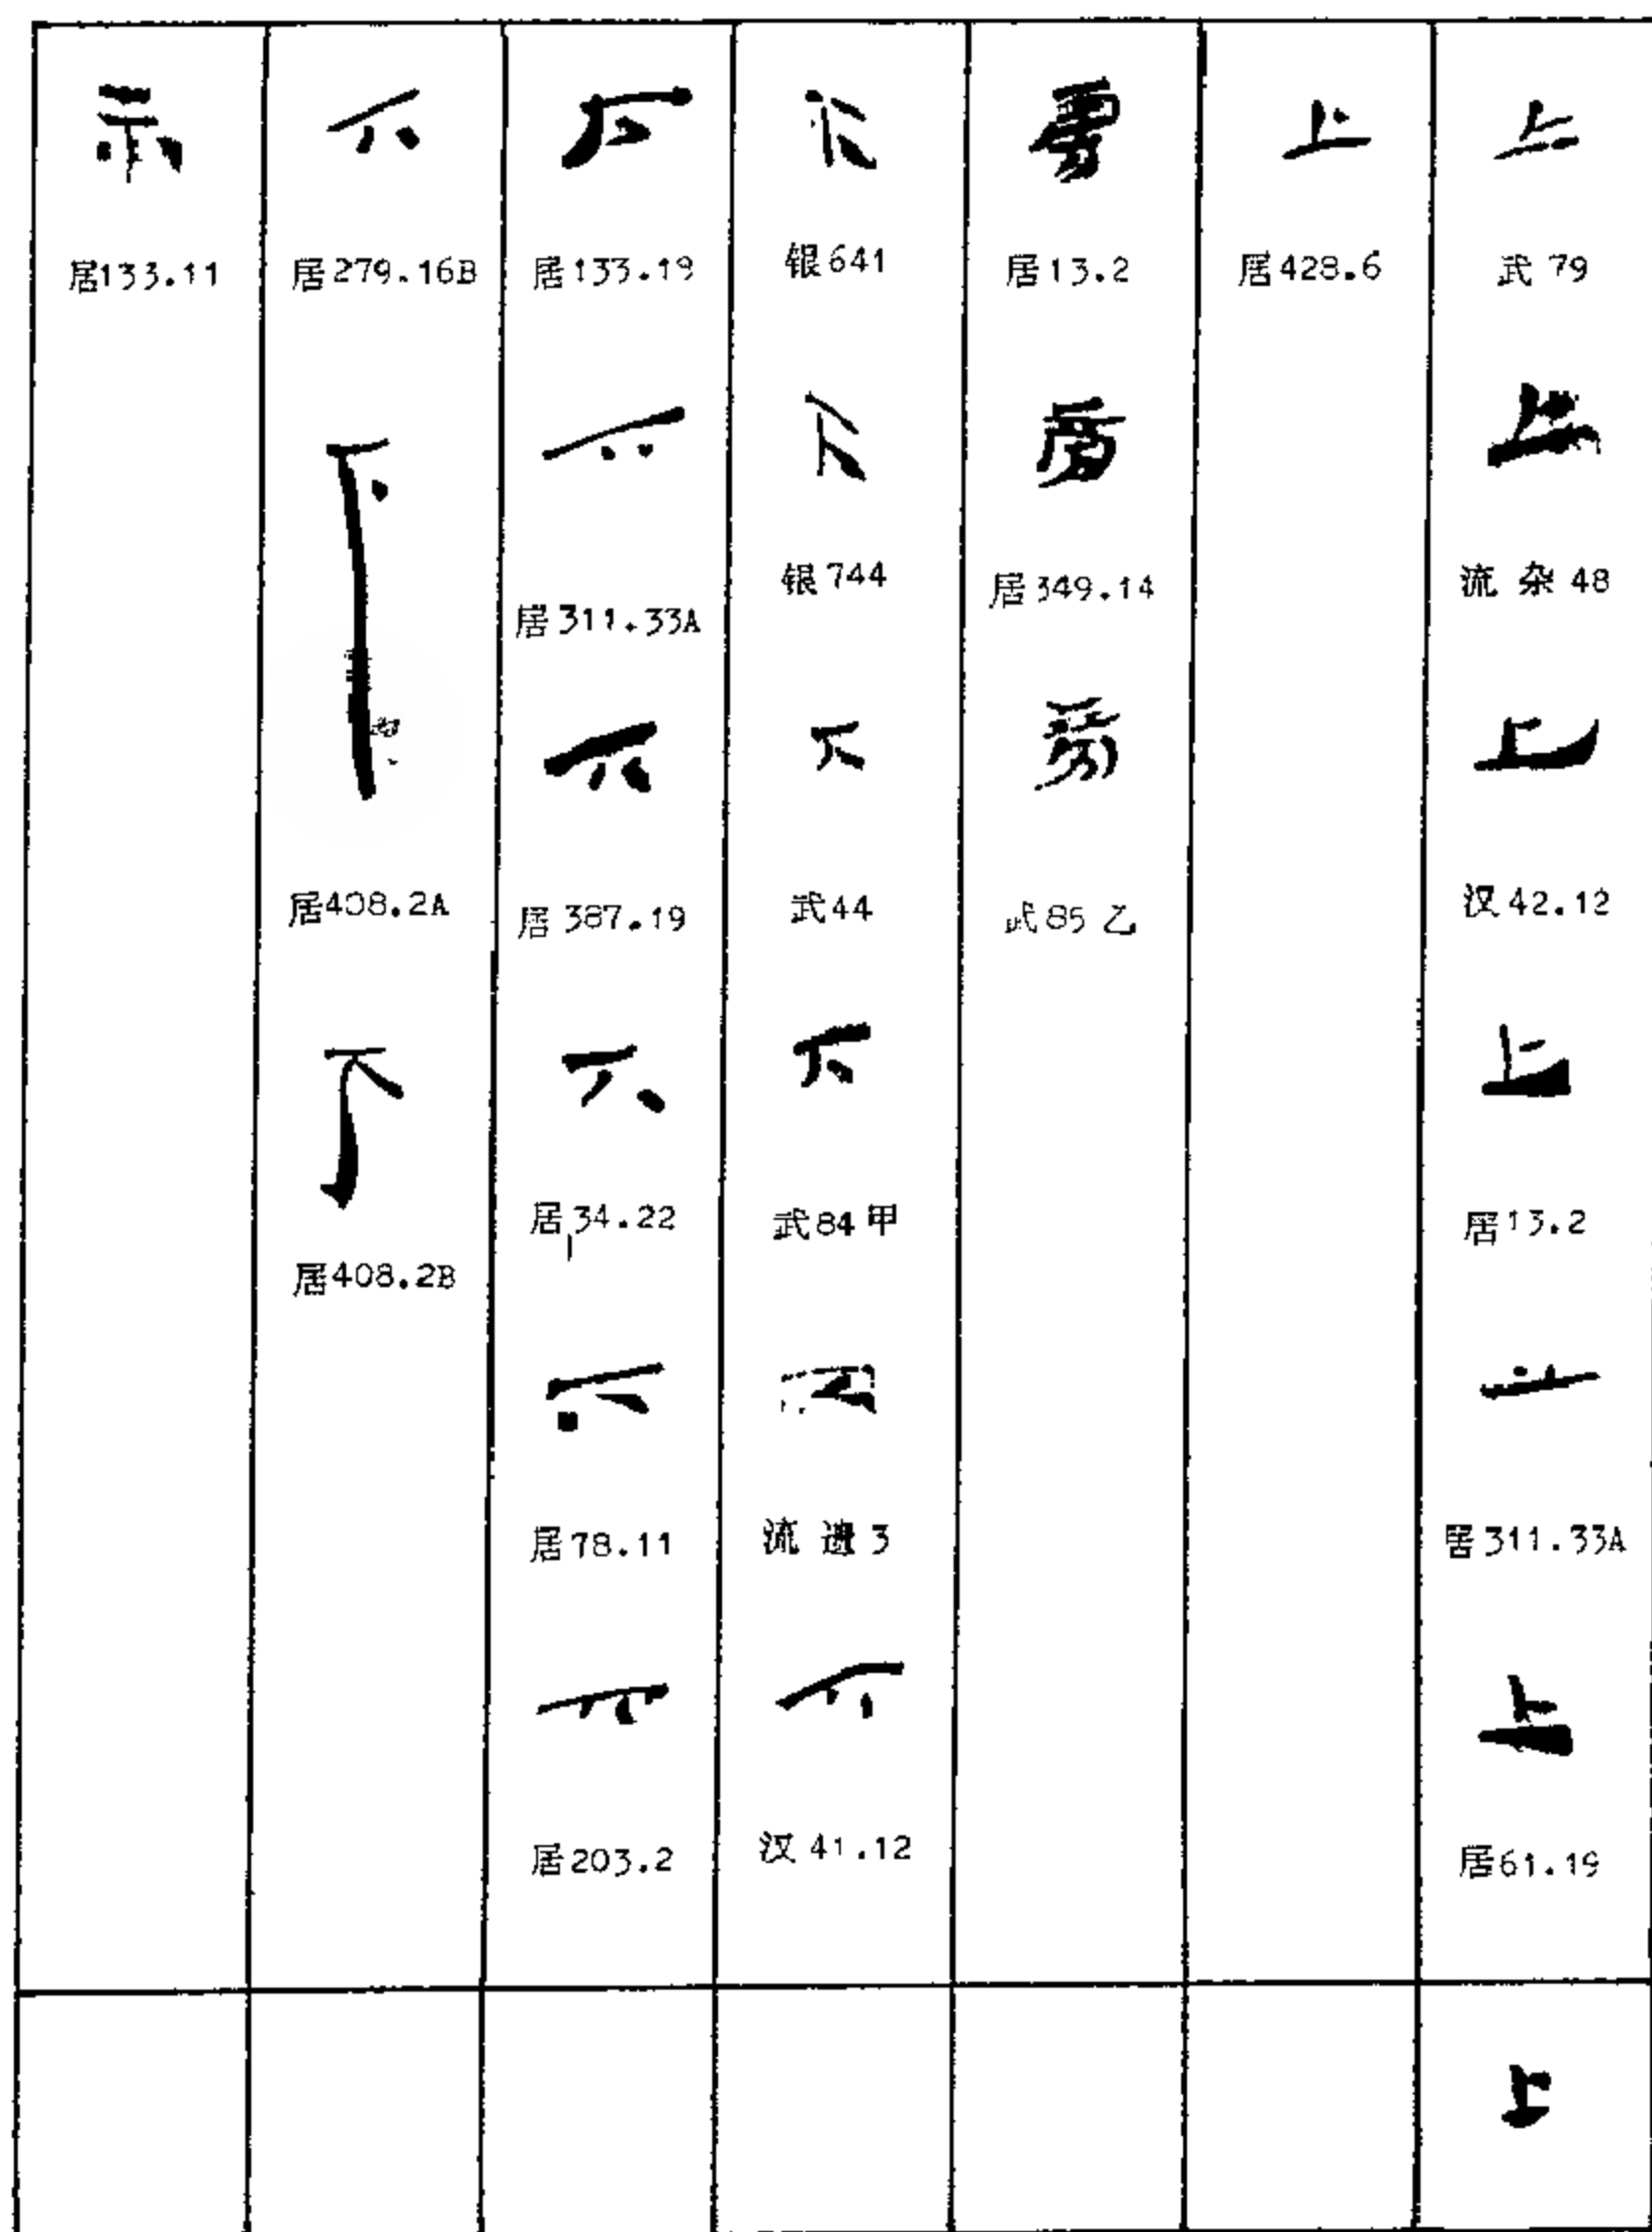 上
武 79
上
流 杂 48
上
汉 42.12
上
居13.2
上
居311.33A
上
居61.19
上
上
居428.6
旁
居13.2
旁
居349.14
旁
武85乙
下
银641
下
银744
下
武44
下
武84甲
下
流 遗 3
下
汉 41.12
下
居133.19
下
居311.33A
下
居387.19
下
居34.22
下
居78.11
下
居203.2
下
居279.16B
下
居408.2A
下
居408.2B
示
居133.11